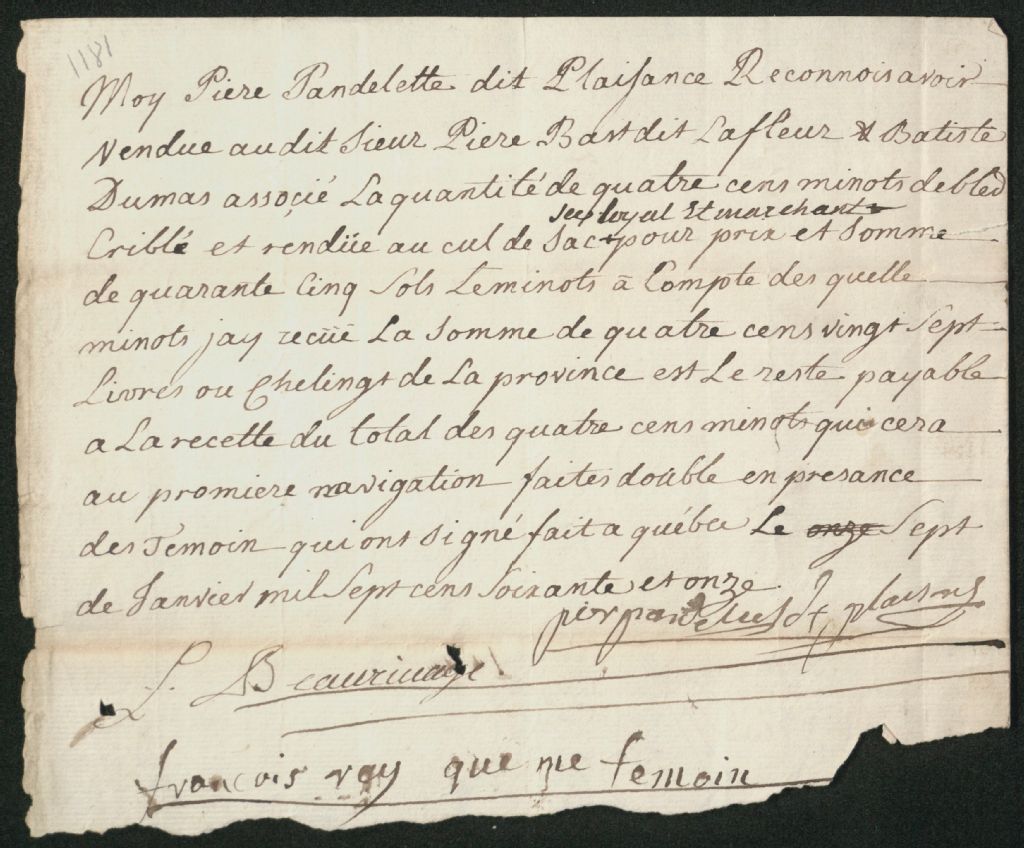 1181
Moy Piere Pandelette dit Plaisance Reconnois avoir
Vendue audit Sieur Piere Bast dit Lafleur & Batiste
Dumas associé La quantité de quatre cens minots de bled
Sec loyal Et marchant
Criblé et rendüe au cul de Sac pour prix et Somme
de quarante Cinq Sols Leminots a Compte des quelle
minots jay recüë La Somme de quatre cens vingt Sept
Livres ou Chelingt de La province est Le reste payable
a La recette du total des quatre cens minots qui cera
au promiere navigation faites double en presance
des Temoin qui ont Signé fait a québec Le onze Sept
de Janvier mil Sept cens Soixante et onze
pier dt plaisans
L. Beaurivage
francois roy que me temoin